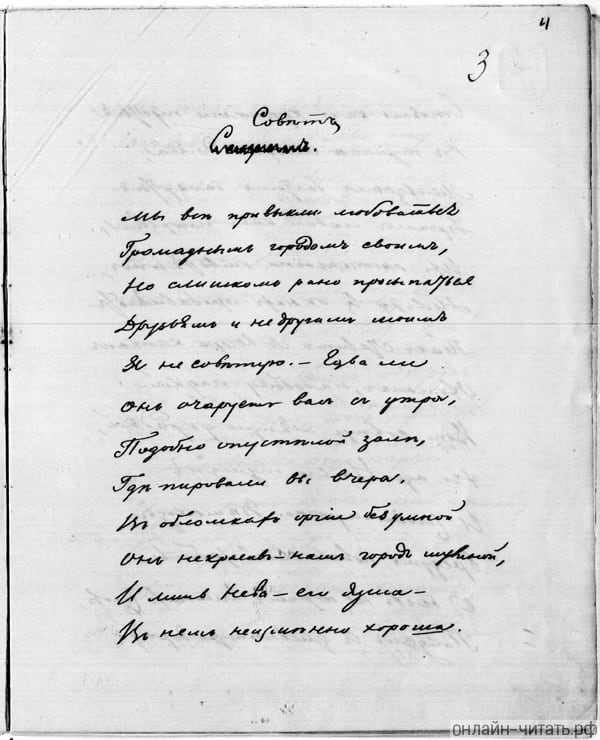 4
3
Совѣтъ
Мы всѣ привыкли любоваться
Громаднымъ городомъ своимъ,
Но слишкомъ рано просыпаться
Друзьямъ и недругамъ моимъ
Я не совѣтую. — Едва ли
Онъ очаруетъ васъ съ утра,
Подобно опустѣлой залѣ,
Гдѣ пировали вы вчера.
Въ обломкахъ оргіи безумной
Онъ некрасивъ — нашъ городъ шумной,
И лишь Нева — его душа —
Въ немъ неизмѣнно хороша.
онлайн-читать.рф